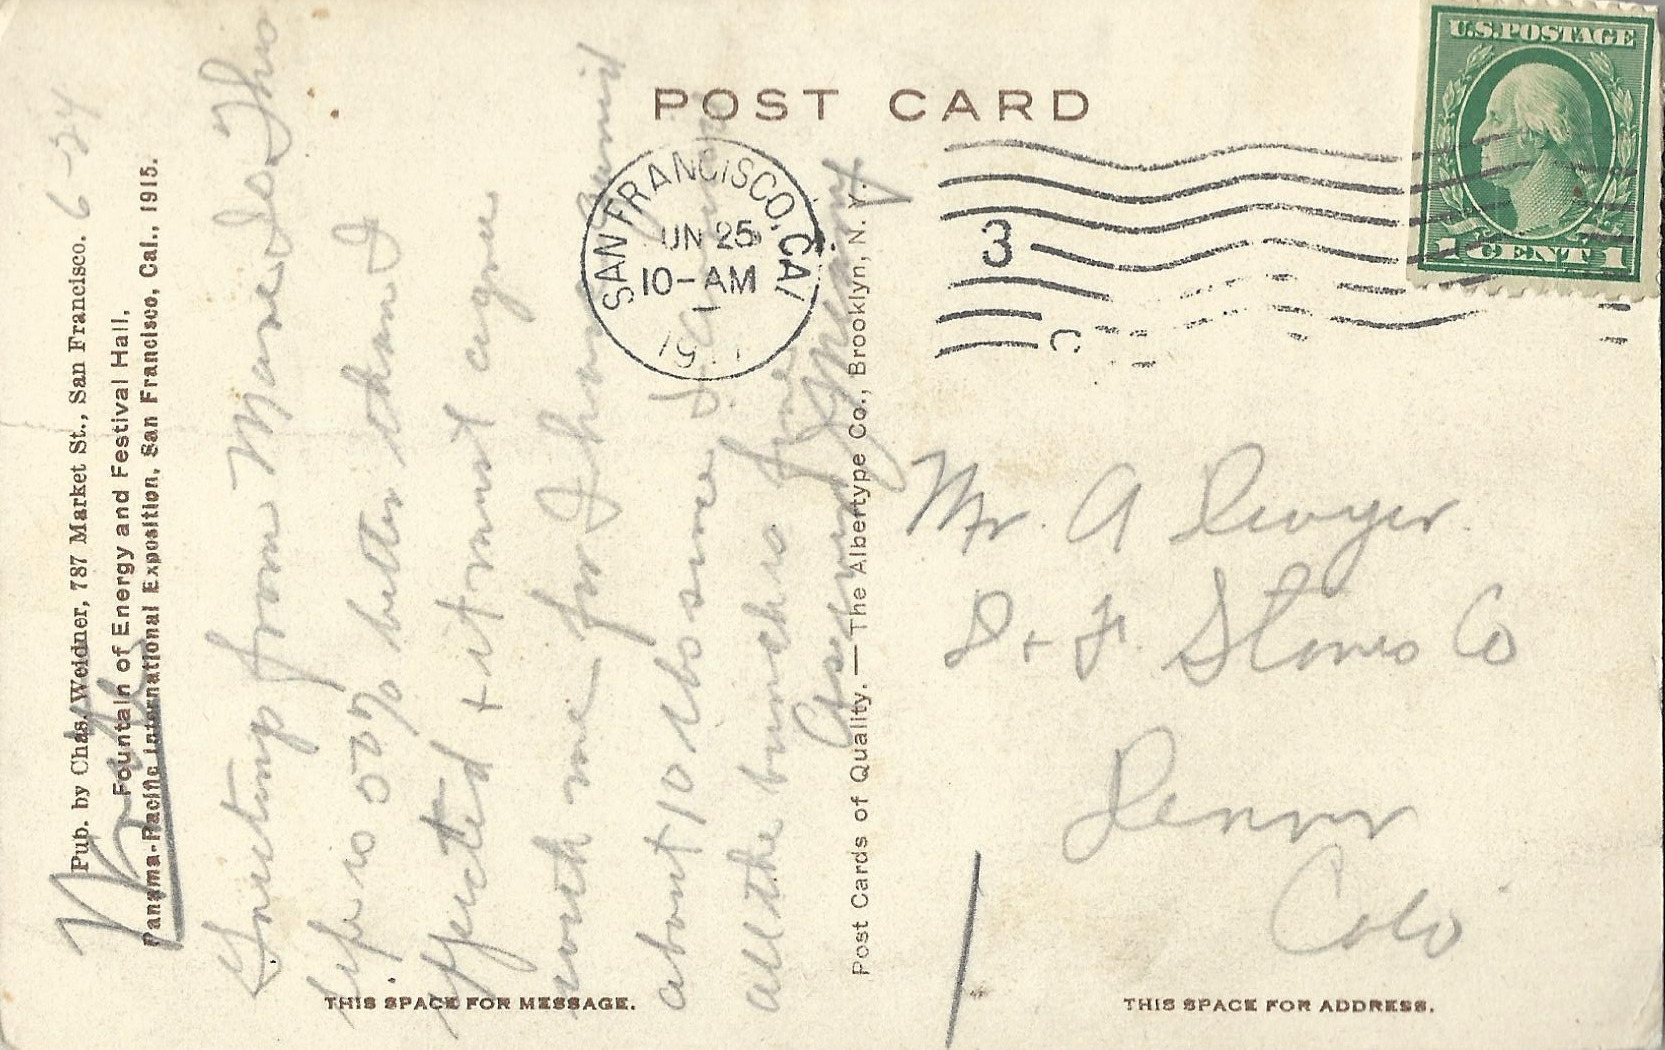 POST CARD
U.S. POSTAGE
1 CENT 1
SAN FRANCISCO, CAL
JUN 25
10-AM
1915
3
C
6-24
Pub. by Chas. Weidner, 787 Market St., San Francisco.
Fountain of Energy and Festival Hall,
Panama-Pacific International Exposition, San Francisco, Cal., 1915.
Greetings from Mare Is. This
life is 00% better than I
expected & it must agree
with me for I have gained
about 10 lbs since I
all the bunch is fine
As ever
Post Cards of Quality.—The Albertype Co., Brooklyn, N. Y.
Mr. A Dwyer.
D & F. Stores Co
Denver
Colo
THIS SPACE FOR MESSAGE.
THIS SPACE FOR ADDRESS.